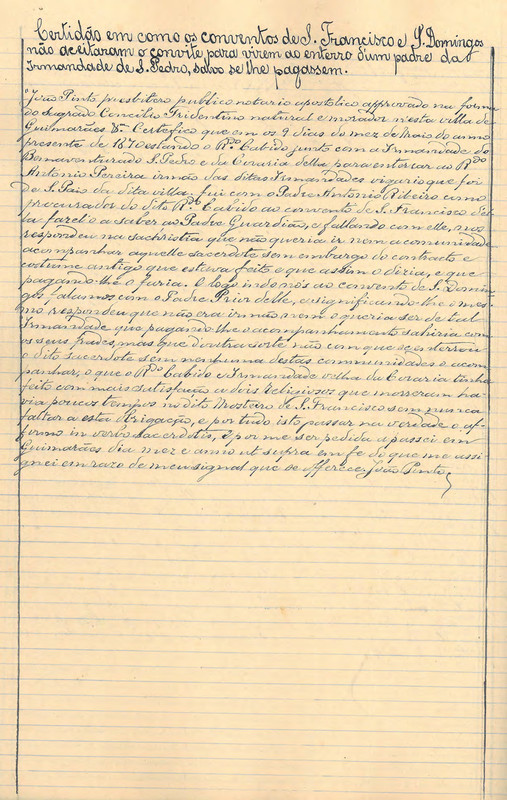 Certidão em como os conventos de S. Francisco e S. Domingos
não aceitaram o convite para virem ao enterro d'um padre da
Irmandade de S. Pedro, salvo se lhe pagassem.
"João Pinto, presbitero publico notario apostolico approvado na forma
do Sagrado Concilio Tridentino natural e morador n'esta villa de
Guimarães &ª Certefico que em os 9 dias do mez de Maio do anno
presente de 1670 estando o Rdo Cabido junto com a Irmandade do
Bemaventurado S. Pedro e da Coraria della para enterrar ao Rdo
Antonio Pereira irmão das ditas Irmandades vigario que foi
de S. Paio da dita villa, fui com o Padre Antonio Ribeiro como
procurador do dito Rdo Cabido ao convento de S. Francisco del-
la fazel-o a saber ao Padre Guardião, e fallando com elle, nos
respondeu na sachristia que não queria ir nem a comunidade
acompanhar aquelle sacerdote sem embargo do contracto e
costume antigo que estava feito e que assim o diria, e que
pagando-lhe o faria. E logo indo nós ao convento de S. Domin-
gos falamos com o Padre Prior delle, e significando-lhe o mes-
mo respondeu que não era irmão nem o queria ser de tal
Irmandade que pagando-lhe o acompanhamento sahiria com
os seus frades, mas que d'outra sorte não com que se enterrou
o dito sacerdote sem nenhuma destas communidades o acom-
panhar, o que o Rdo Cabido e Irmandade velha da Coraria tinha
feito com mais satisfação a dois religiosos que morreram ha-
via poucos tempos no dito Mosteiro de S. Francisco sem nunca
faltar a esta obrigação, e por tudo isto passar na verdade o af-
firmo in verbo sacerdotis, e por me ser pedida a passei em
Guimarães dia mez e anno ut supra em fé do que me assi-
gnei em razo de meu signal que se offerece João Pinto